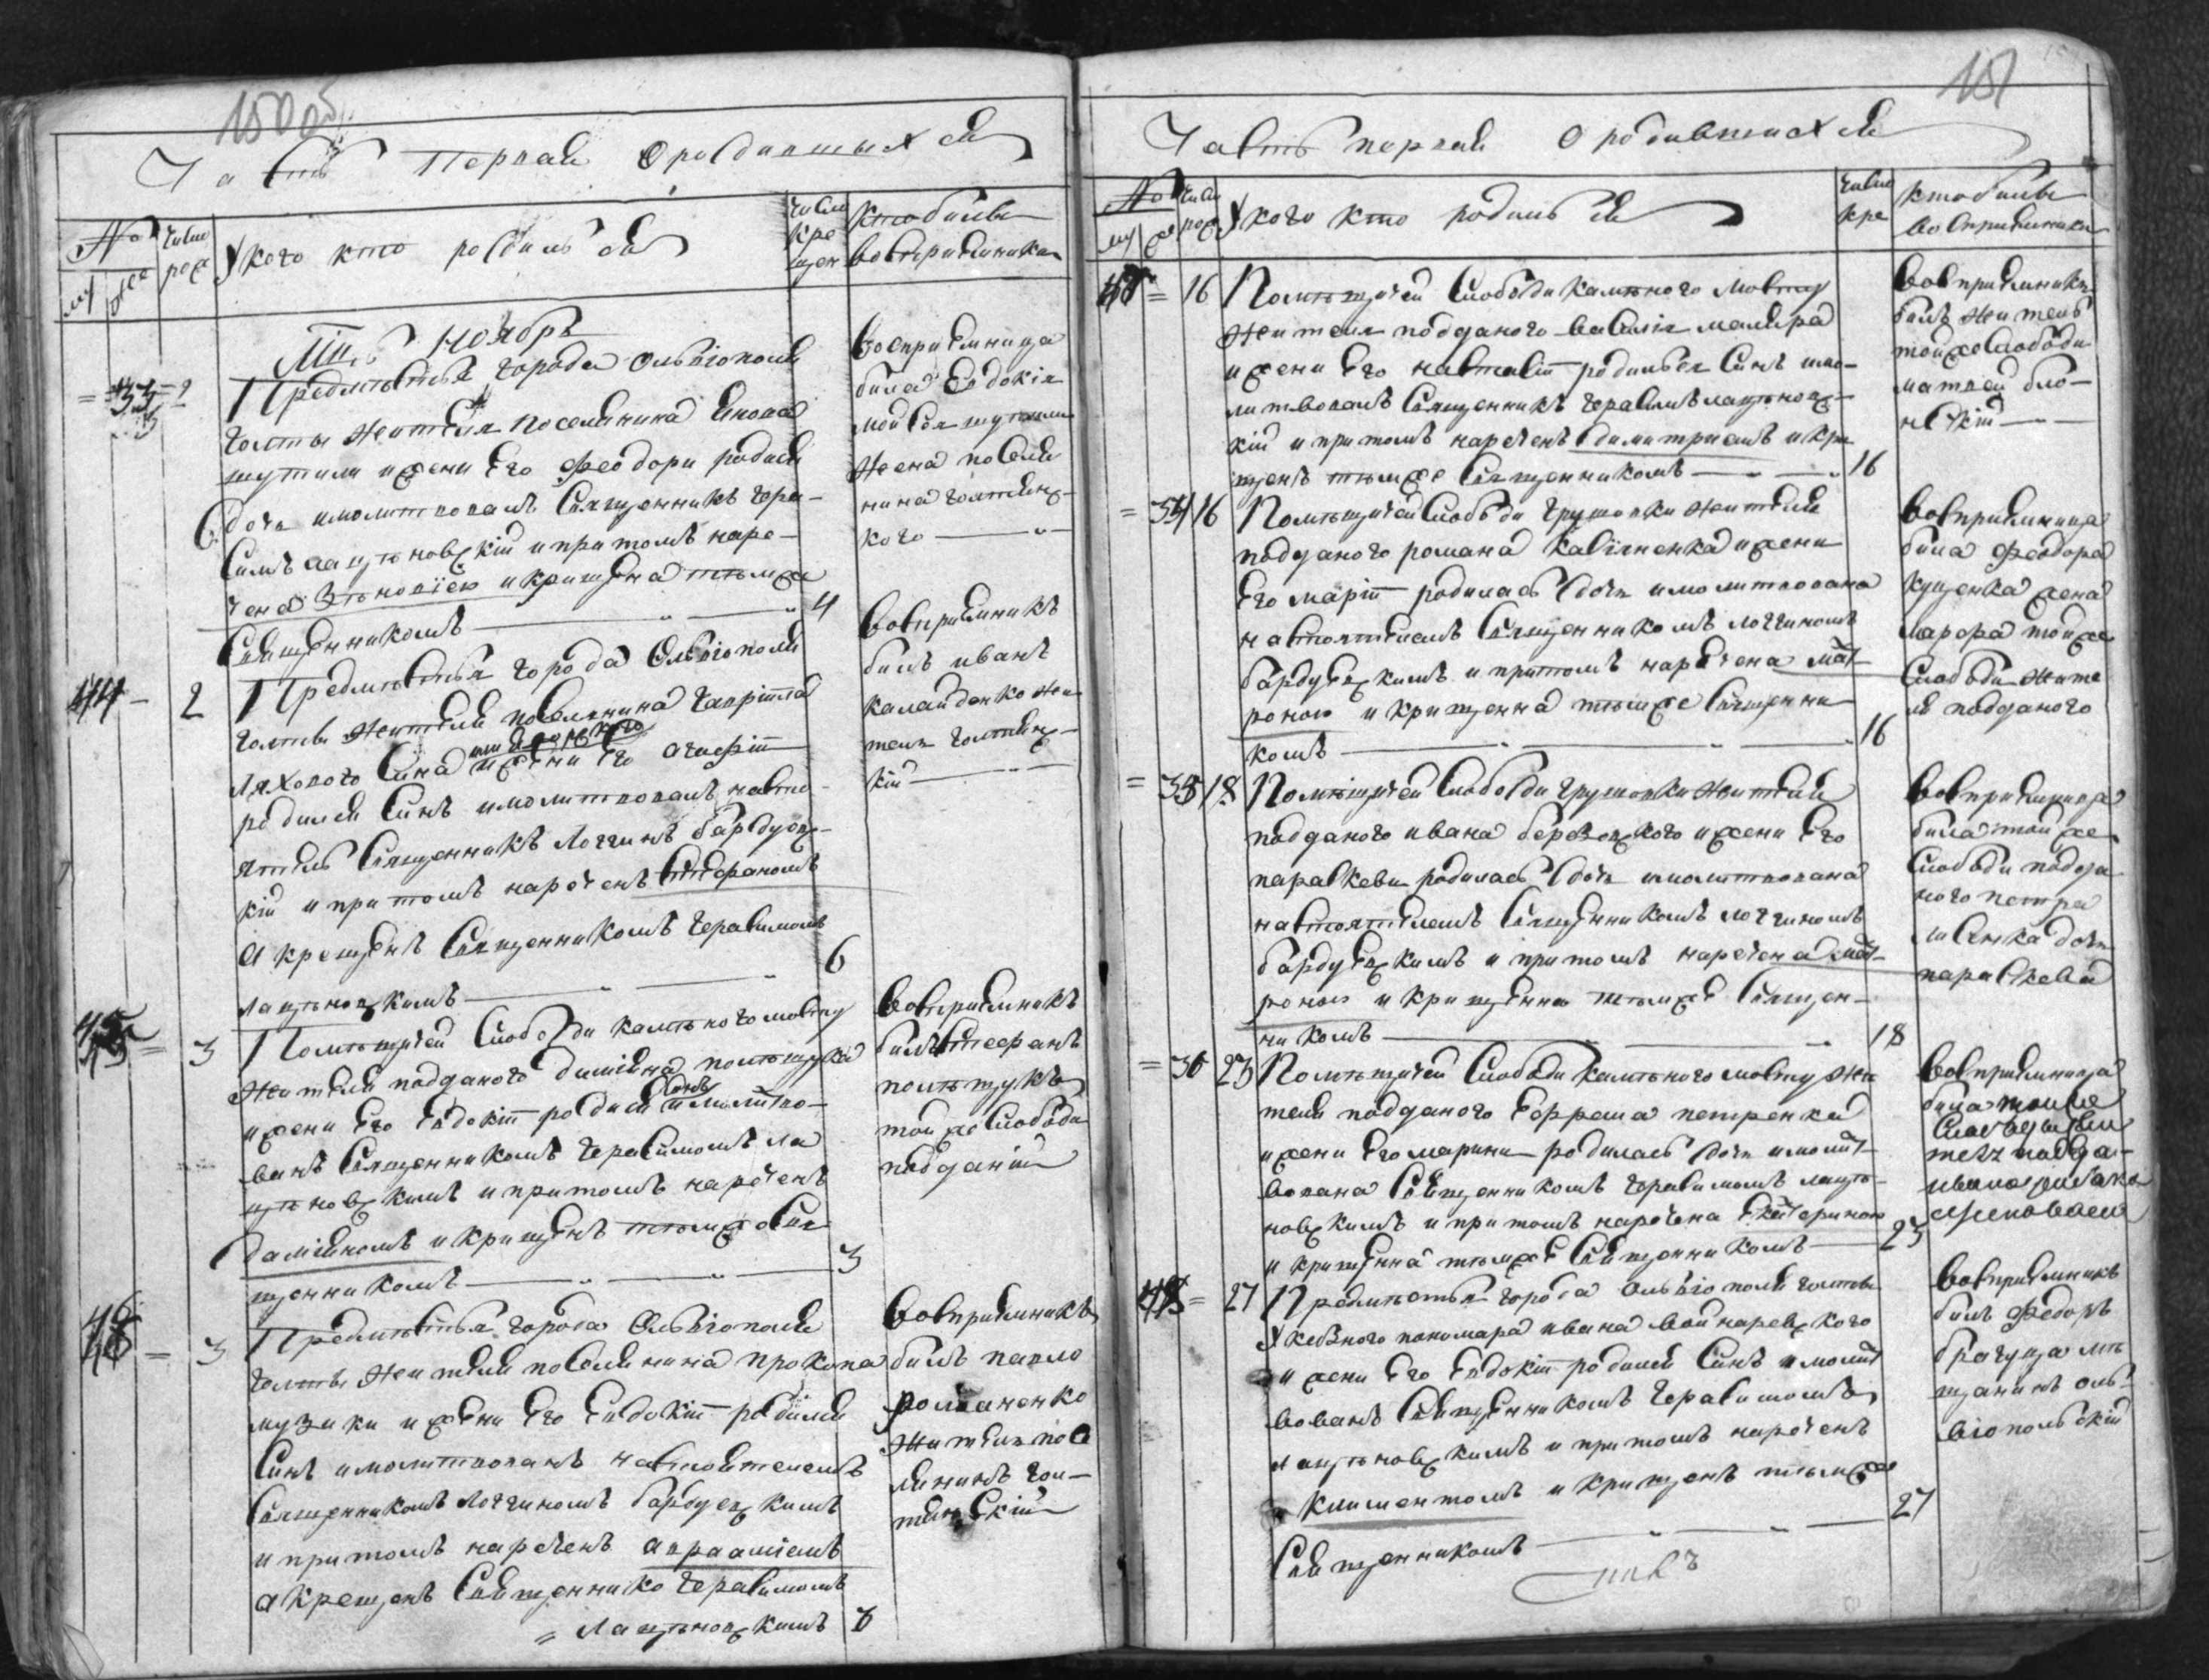 150об
Часть Первая О родившыхся
№ Число рож У кого кто родился число кре щен кто были
му же восприемники
Мць ноябрь
33 2 Предместья города Ольвіополя
Голты жителя поселянина Якова
шутили и жени Его Феодори родися
дочь имолитвовалъ Священникъ Гера-
симъ Лацѣновскій и притомъ наре-
чена Зѣновіею и крищена тѣмже
Священникомъ 4
Восприемница
била Евдокія
шутили
жена поселя
нина голтянс-
кого
44 2 Предместья города Ольвіополя
Голты жителя поселянина Гавріила
Ляхового Сина и жени Его Агафіи
родился Синъ имолитвовалъ насто-
ятель Священникъ Логгинъ бардуевс-
кій и притомъ нареченъ Стефаномъ
А крещенъ Священникомъ Герасимомъ
Лацѣновскимъ 6
Восприемникъ
билъ иванъ
калайденко жи
тель голтянс-
кій
45 3 Помѣщичей Слободи Каменного мосту
жителя подданого Даміяна полѣщука
и жени Его Евдокіи родися Синъ имолитво-
ванъ Священникомъ Герасимомъ Ла
цѣновскимъ и притомъ нареченъ
Даміяномъ и крищенъ тѣмже Свя
щенникомъ 3
Восприемникъ
билъ Стефанъ
полѣщукъ
той же Слободи
подданій
46 3 Предместья города Ольвіополя
Голты жителя поселянина прокопа
музики и жени Его Евдокіи родился
Синъ имолитвованъ настоятелемъ
Священникомъ Логгиномъ бардуевскимъ
и притомъ нареченъ аврааміємъ
а крещенъ Священнико Герасимомъ
Лацѣновскимъ 6
Восприемникъ
билъ павло
романенко
житель посе
лянинъ гол-
тянскій
151
Часть первая О родившихся
№ число рож У кого кто родился число кре кто были
му же восприемники
47 16 Помѣщичей Слободи Каменного Мосту
жителя подданого Василія маляра
и жени Его настасіи родился Синъ имо-
литвовалъ Священникъ Герасимъ Лацѣновс-
кій и притомъ нареченъ димитріемъ и кри
щенъ тѣмже Священникомъ 16
Восприемникъ
билъ житель
тойже Слободи
матвей
34 16 Помѣщичей Слободи Грушовки жителя
подданого романа Касіяненка и жени
Его маріи родилась дочь имолитвована
настоятелемъ Священникомъ Логгиномъ
бардуевскимъ и притомъ наречена мат-
роною и крищенна тѣмже Священни
комъ 16
Восприемница
била Феодора
куценка жена
тойже
Слободи жите
ля подданого
35 18 Помѣщичей Слободи Грушовки жителя
подданого ивана березовского и жени Его
параскеви родилась дочь имолитвована
настоятелемъ Священникомъ Логгиномъ
бардуевскимъ и притомъ наречена мат-
роною и крищенна тѣмже Священ-
никомъ 18
Восприемница
била той же
Слободи подда
ного петра
дочь
параскева
36 23 Помѣщичей Слободи Каменного мосту жи
теля подданого Ефрема петренка
и жени Его марини родилась дочь имолит-
вована Священникомъ Герасимомъ Лацѣ-
новскимъ и притомъ наречена Екатериною
и крищенна тѣмже Священникомъ 23
Восприемница
била тойже
48 27 Предместья города Ольвіополя голты
Указного пономара ивана Войнаревского
и жени Его Евдокіи родился Синъ и молит
вованъ Священникомъ Герасимомъ
Лацѣновскимъ и притомъ нареченъ
климентомъ и крищенъ тѣмже
Священникомъ 27
Восприемникъ
билъ Федоръ
мѣ
щанинъ оль-
віопольскій